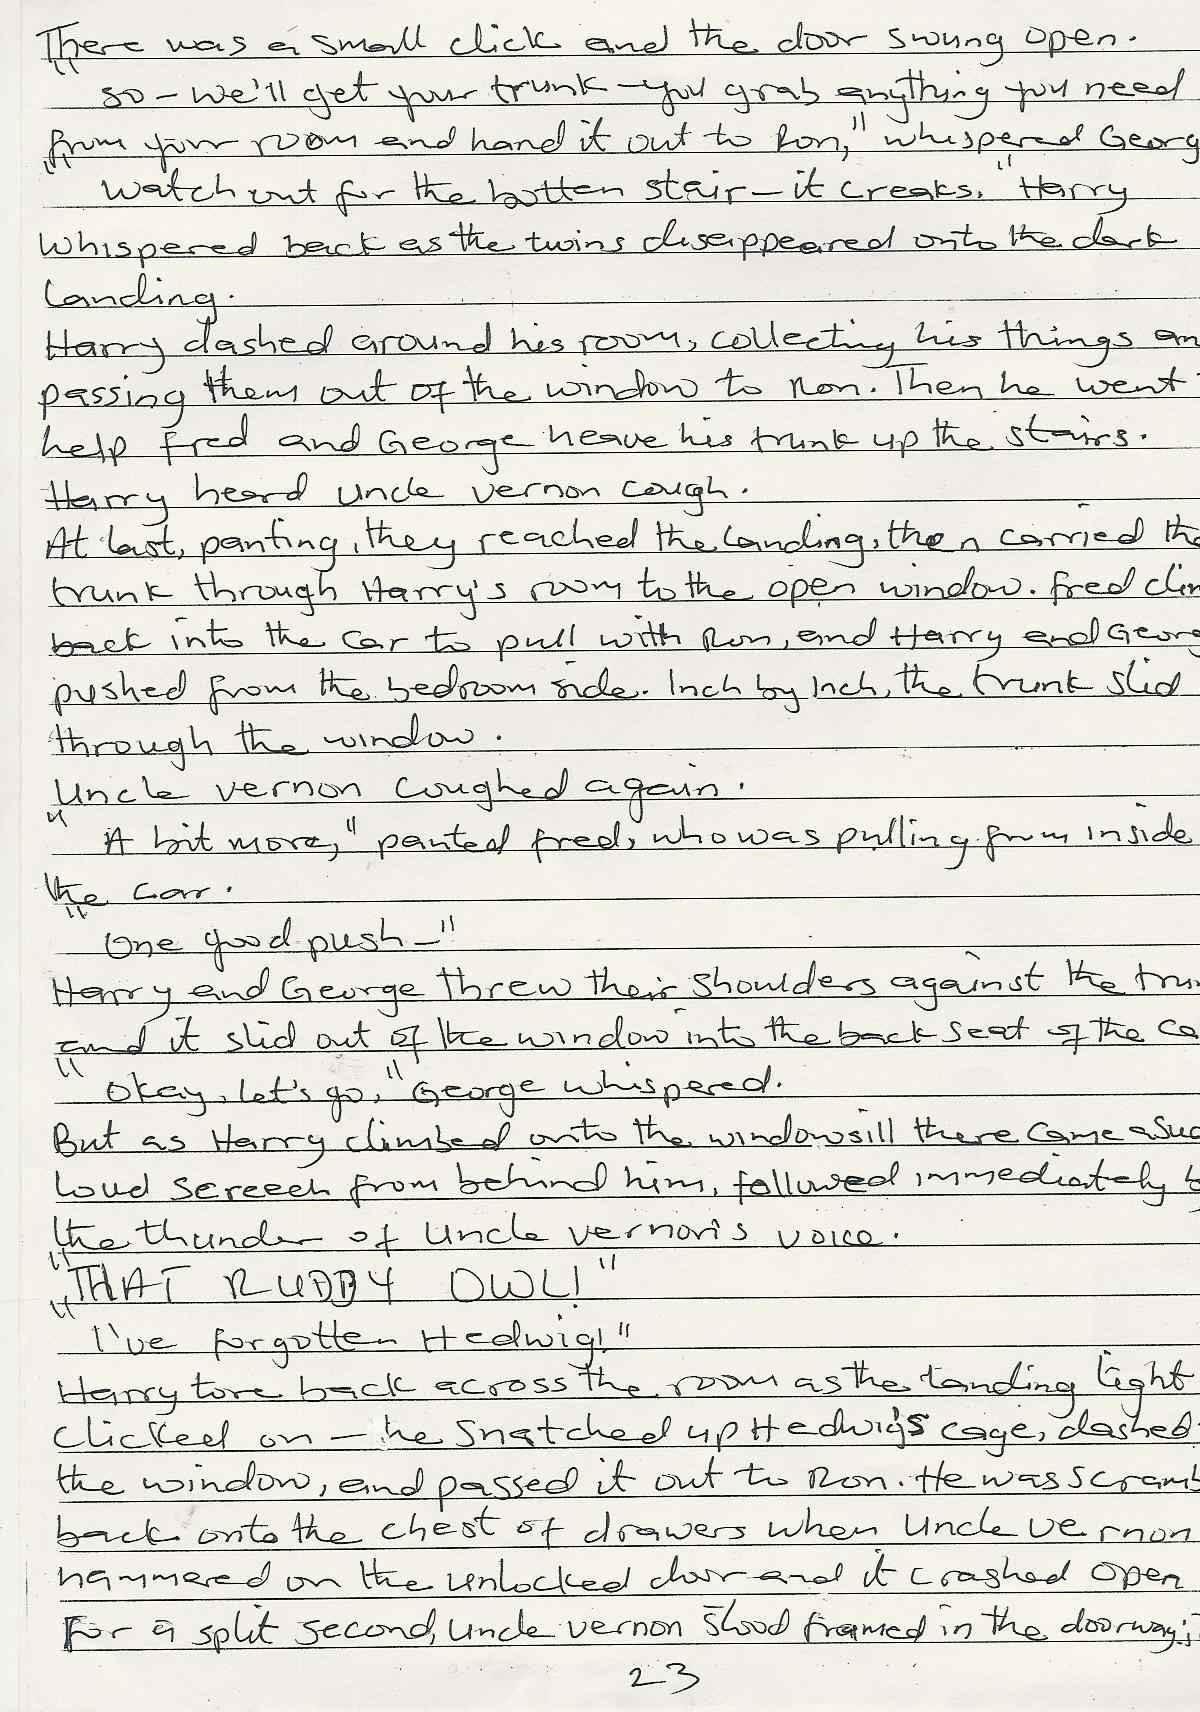 There was a small click and the door swung open.
"so – we'll get your trunk – you grab anything you need
from your room and hand it out to Ron," whispered Georg
"Watch out for the bottem stair – it creaks." Harry
whispered back as the twins diseppeared onto the dark
landing.
Harry dashed around his room, collecting his things an
passing them out of the window to Ron. Then he went
help fred and George heave his trunk up the stairs.
Harry heard Uncle vernon cough.
At last, panting, they reached the landing, then carried the
trunk through Harry's room to the open window. fred clim
back into the car to pull with Ron, and Harry and Georg
pushed from the bedroom side. Inch by Inch, the trunk slid
through the window.
Uncle vernon coughed again.
"A bit more," panted fred, who was pulling from inside
the car.
"One good push –"
Harry and George threw their shoulders against the trun
and it slid out of the window into the back seat of the ca
"Okay, let's go," George whispered.
But as Harry climbed onto the windowsill there came a sud
loud screech from behind him, followed immediately b
the thunder of Uncle vernon's voice.
"THAT RUDDY OWL!"
"I've forgotten Hedwig!"
Harry tore back across the room as the landing light
clicked on – he snatched up Hedwig's cage, dashed
the window, and passed it out to Ron. He was scramb
back onto the chest of drawers when Uncle vernon
hammered on the unlocked door and it crashed open
For a split second, Uncle vernon stood framed in the doorway;
23